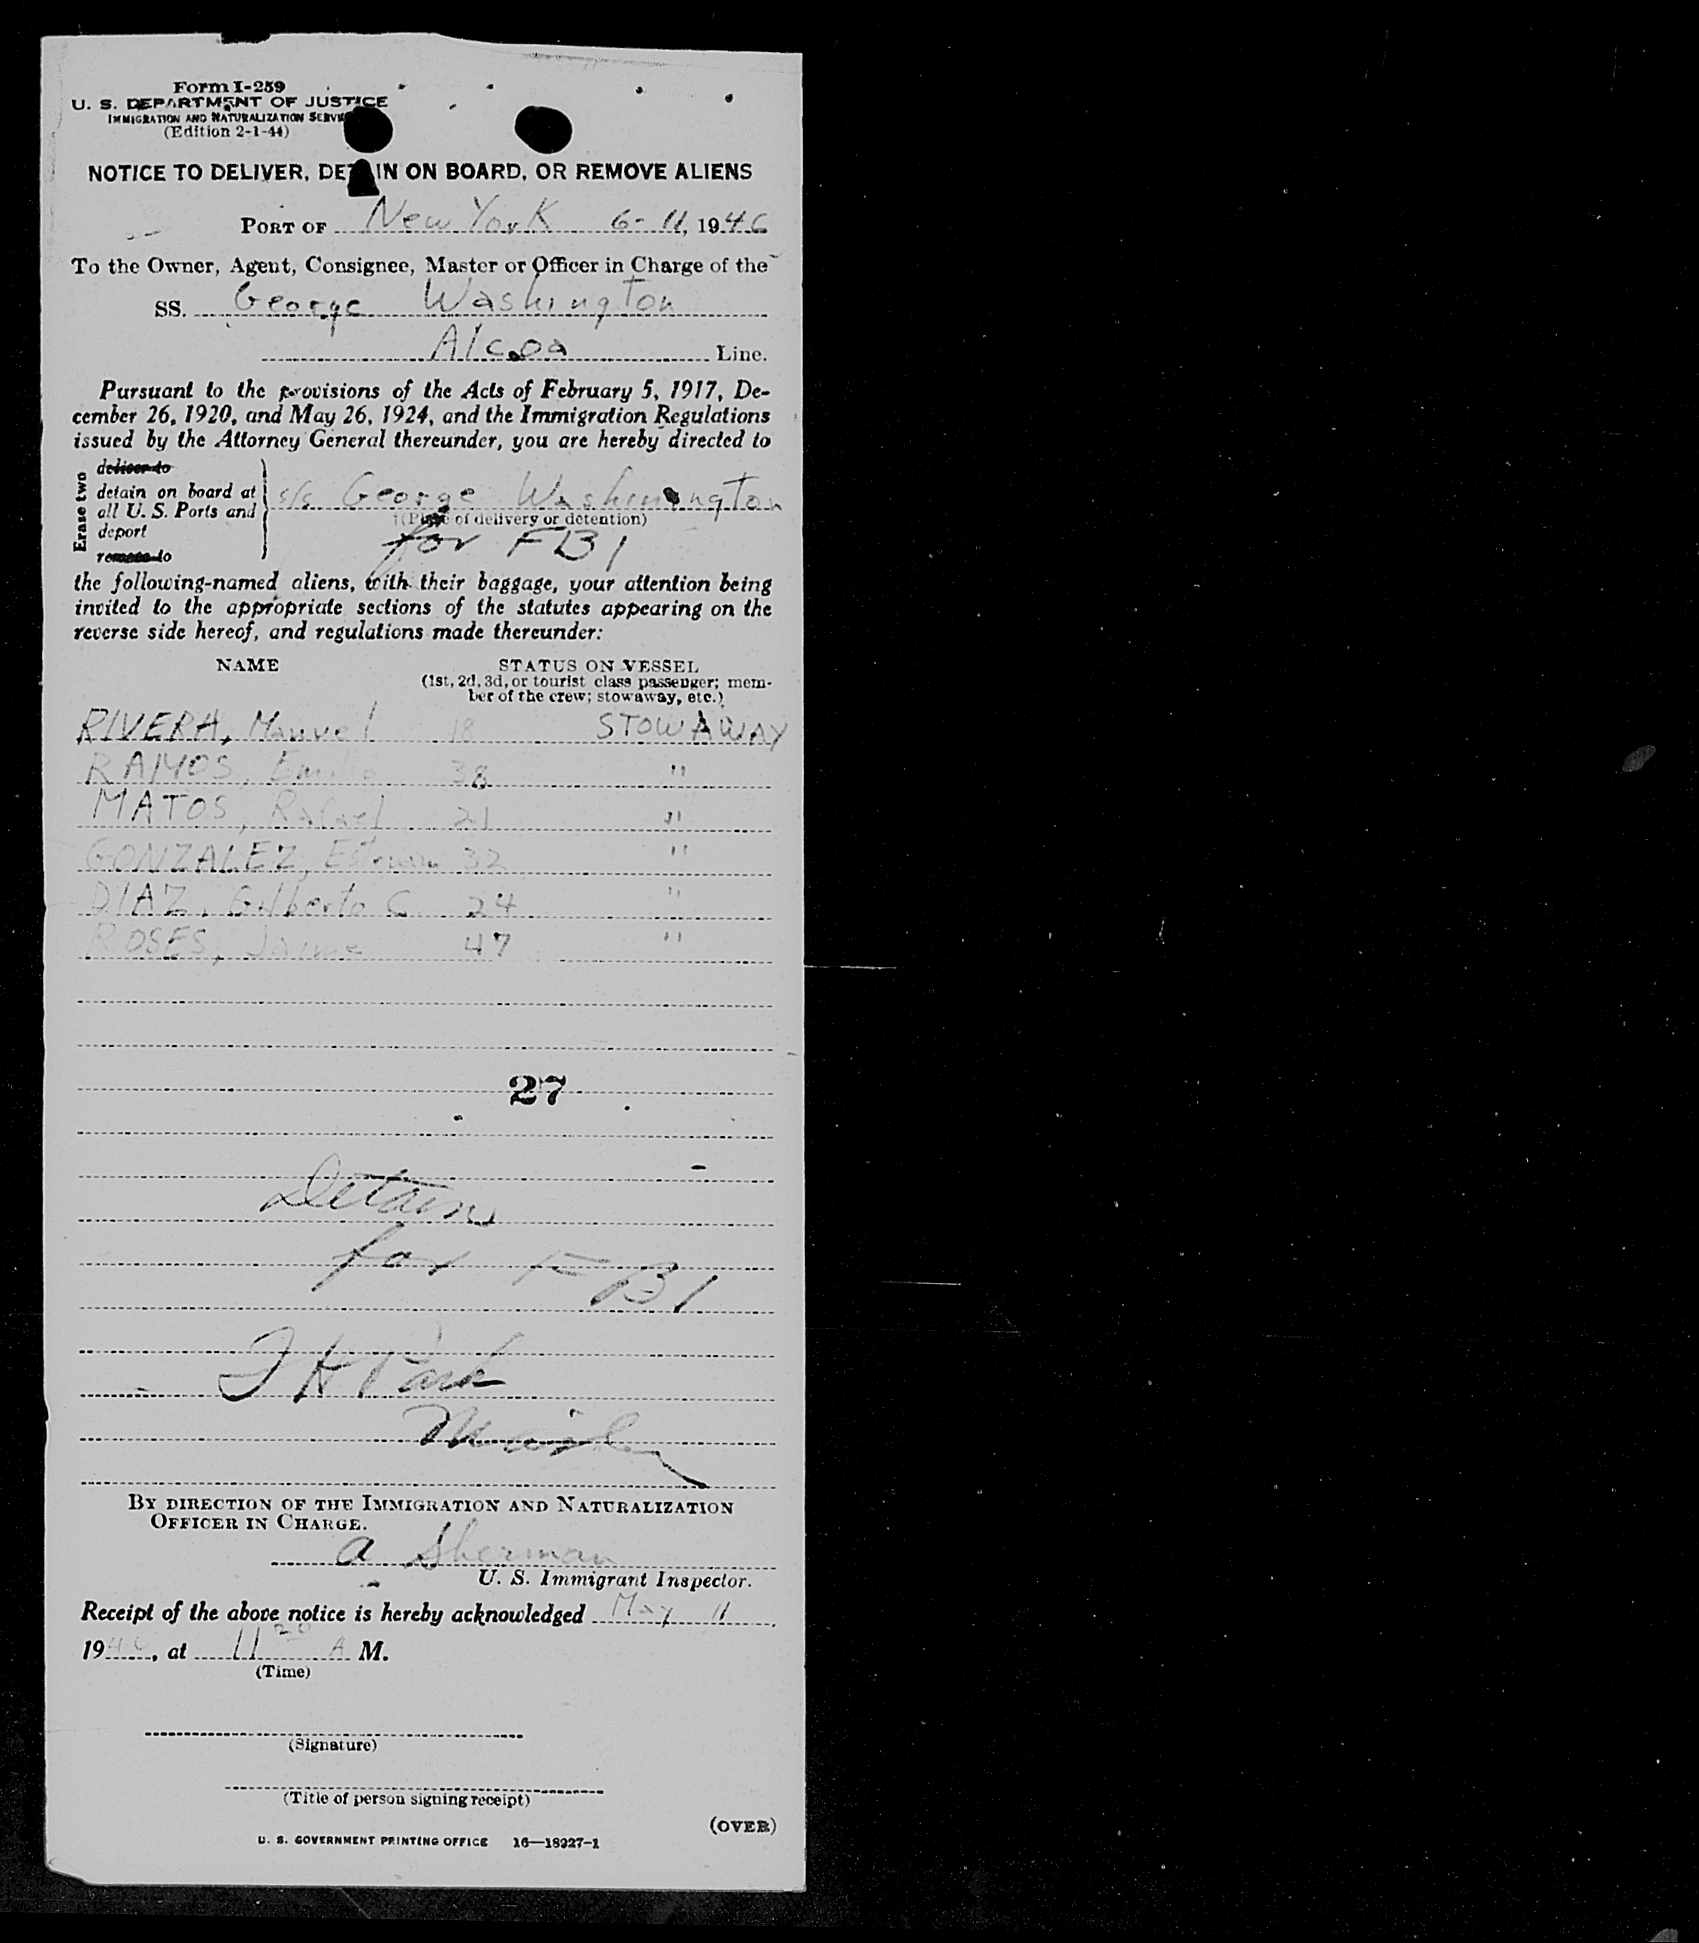 Form I-259
U. S. DEPARTMENT OF JUSTICE
IMMIGRATION AND NATURALIZATION SERVICE
(Edition 2-1-44)
NOTICE TO DELIVER, DETAIN ON BOARD, OR REMOVE ALIENS
PORT OF New York 6-11, 1946
To the Owner, Agent, Consignee, Master or Officer in Charge of the
SS. George Washington
Alcoa Line.
Pursuant to the provisions of the Acts of February 5, 1917, De-
cember 26, 1920, and May 26, 1924, and the Immigration Regulations
issued by the Attorney General thereunder, you are hereby directed to
Erase two
deliver to
detain on board at
all U. S. Ports and
deport
remove to
s/s George Washington
(Place of delivery or detention)
for FBI
the following-named aliens, with their baggage, your attention being
invited to the appropriate sections of the statutes appearing on the
reverse side hereof, and regulations made thereunder:
NAME STATUS ON VESSEL
(1st, 2d, 3d, or tourist class passenger; mem-
ber of the crew; stowaway, etc.)
RIVERA, Manuel 18 STOWAWAY
RAMOS, Emilio 38 "
MATOS, Rafael 21 "
GONZALEZ, 32 "
DIAZ, Gilberto C 24 "
ROSES, Jaime 47 "
27
Detain
for FBI
BY DIRECTION OF THE IMMIGRATION AND NATURALIZATION
OFFICER IN CHARGE.
A Sherman
U. S. Immigrant Inspector.
Receipt of the above notice is hereby acknowledged May 11,
1946, at 11 20 A M.
(Time)
(Signature)
(Title of person signing receipt)
(OVER)
U. S. GOVERNMENT PRINTING OFFICE 16—18927-1